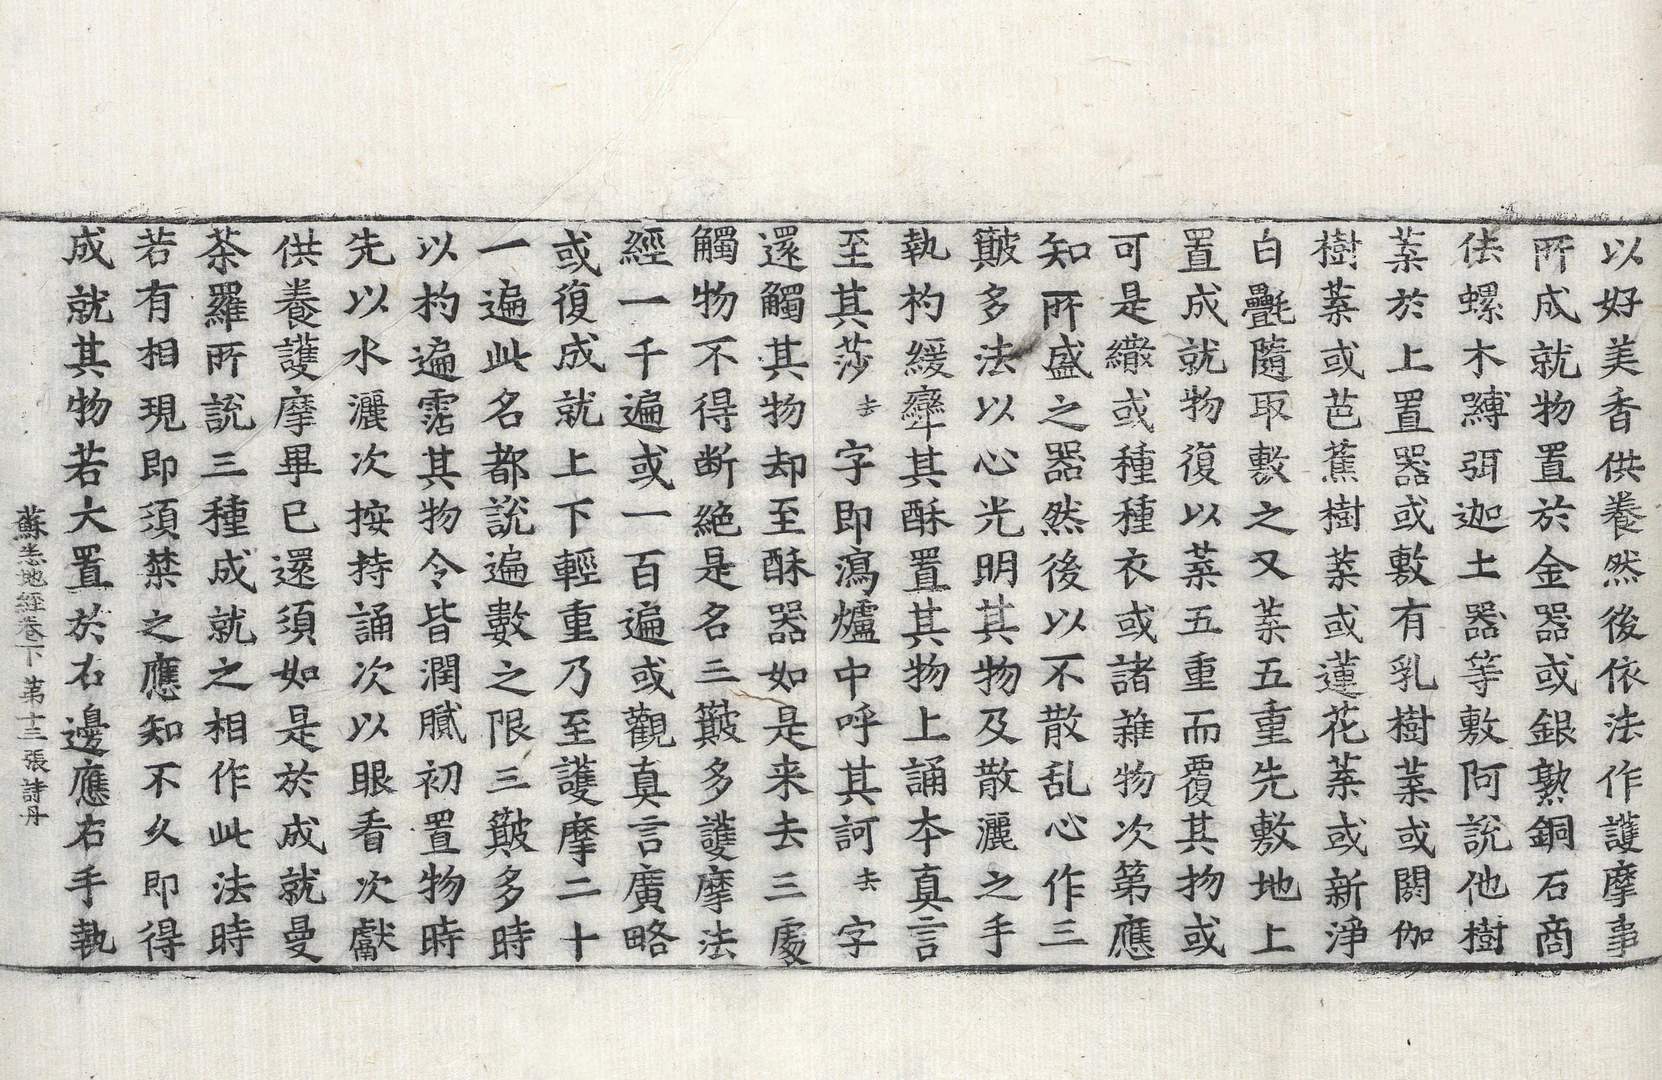 以好美香供養然後依法作護摩事
所成就物置於金器或銀熟銅石商
佉螺木䪙弭迦土器等敷阿說他樹
葉於上置器或敷有乳樹葉或閼伽
樹葉或芭蕉樹葉或蓮花葉或新淨
白㲲隨取敷之又葉五重先敷地上
置成就物復以葉五重而覆其物或
可是繖或種種衣或諸雜物次第應
知所盛之器然後以不散乱心作三
簸多法以心光明其物及散灑之手
執杓緩攣其酥置其物上誦夲真言
至其莎去字即瀉爐中呼其訶去字
還觸其物却至酥器如是来去三處
觸物不得断絶是名三簸多護摩法
經一千遍或一百遍或觀真言廣略
或復成就上下輕重乃至護摩二十
一遍此名都說遍數之限三簸多時
以杓遍霑其物令皆潤膩初置物時
先以水灑次按持誦次以眼看次獻
供養護摩畢已還須如是於成就曼
荼羅所說三種成就之相作此法時
若有相現即須禁之應知不久即得
成就其物若大置於右邊應右手執
蘇悉地經卷下 第十三張 詩丹